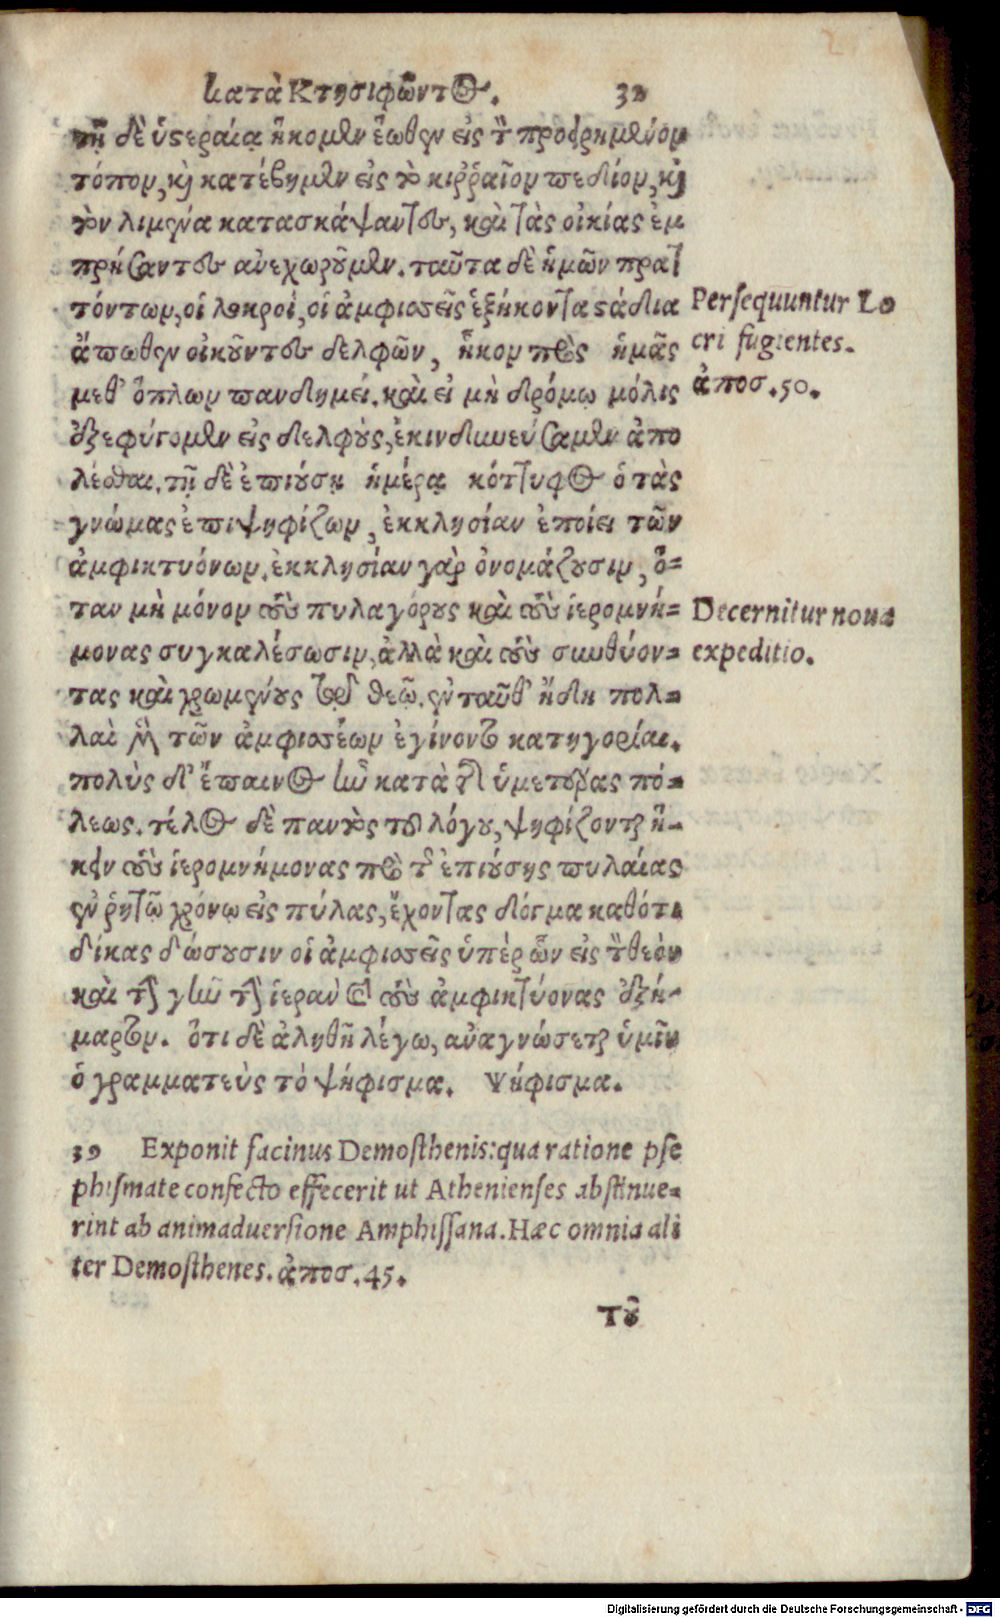 κατὰ Κτησιφῶντος. 32
τῇ δὲ ὑστεραίᾳ ἥκομεν ἕωθεν εἰς τὸν προειρημένον
τόπον, καὶ κατέβημεν εἰς τὸ κιῤῥαῖον πεδίον, καὶ
τὸν λιμένα κατασκάψαντες, καὶ τὰς οἰκίας ἐμ
πρήσαντες ἀνεχωροῦμεν. ταῦτα δὲ ἡμῶν πρατ
τόντων, οἱ λοκροὶ, οἱ ἀμφισσεῖς ἑξήκοντα στάδια
ἄπωθεν οἰκοῦντες δελφῶν, ἧκον πρὸς ἡμᾶς
μεθ' ὅπλων πανδημεί. καὶ εἰ μὴ δρόμῳ μόλις
ἐξεφύγομεν εἰς δελφοὺς, ἐκινδυνεύσαμεν ἀπο
λέσθαι. τῇ δὲ ἐπιούσῃ ἡμέρᾳ κόττυφος ὁ τὰς
γνώμας ἐπιψηφίζων, ἐκκλησίαν ἐποίει τῶν
ἀμφικτυόνων. ἐκκλησίαν γὰρ ὀνομάζουσιν, ὅ-
ταν μὴ μόνον τοὺς πυλαγόρους καὶ τοὺς ἱερομνή-
μονας συγκαλέσωσιν, ἀλλὰ καὶ τοὺς συνθύον-
τας καὶ χρωμένους τῷ θεῷ. ἐνταῦθ' ἤδη πολ-
λαὶ μὲν τῶν ἀμφισσέων ἐγίνοντο κατηγορίαι.
πολὺς δ' ἔπαινος ἦν κατὰ τῆς ὑμετέρας πό-
λεως. τέλος δὲ παντὸς τοῦ λόγου, ψηφίζονται ἥ-
κειν τοὺς ἱερομνήμονας πρὸ τῆς ἐπιούσης πυλαίας
ἐν ῥητῷ χρόνῳ εἰς πύλας, ἔχοντας δόγμα καθότι
δίκας δώσουσιν οἱ ἀμφισσεῖς ὑπὲρ ὧν εἰς τὸν θεὸν
καὶ τὴν γῆν τὴν ἱερὰν καὶ τοὺς ἀμφικτύονας ἐξή-
μαρτον. ὅτι δὲ ἀληθῆ λέγω, ἀναγνώσεται ὑμῖν
ὁ γραμματεὺς τὸ ψήφισμα. Ψήφισμα.
Persequuntur Lo
cri fugientes.
ἀποσ. 50.
Decernitur noua
expeditio.
39 Exponit facinus Demosthenis: qua ratione pse
phismate confecto effecerit ut Athenienses abstinue-
rint ab animaduersione Amphissana. Hæc omnia ali
ter Demosthenes. ἀποσ. 45.
Τοῦ
Digitalisierung gefördert durch die Deutsche Forschungsgemeinschaft - DFG